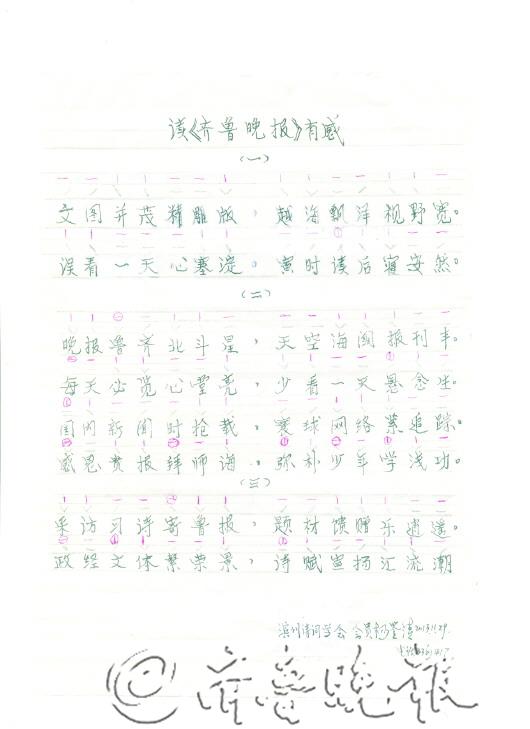 读《齐鲁晚报》有感
(一)
文图并茂精雕版，越海飘洋视野宽。
误看一天心塞淀，寅时读后寝安然。
(二)
晚报鲁齐北斗星，天空海阔报刊丰。
每天必览心堂亮，少看一天悬念生。
国内新闻时抢载，寰球网络紧追踪。
感恩贵报拜师诲，弥补少年学浅功。
(三)
采访习详寄鲁报，题材馈赠乐逍遥。
政经文体繁荣景，诗赋宣扬汇流潮
滨州诗词学会 会员 2013.11.29.
@齐鲁晚报